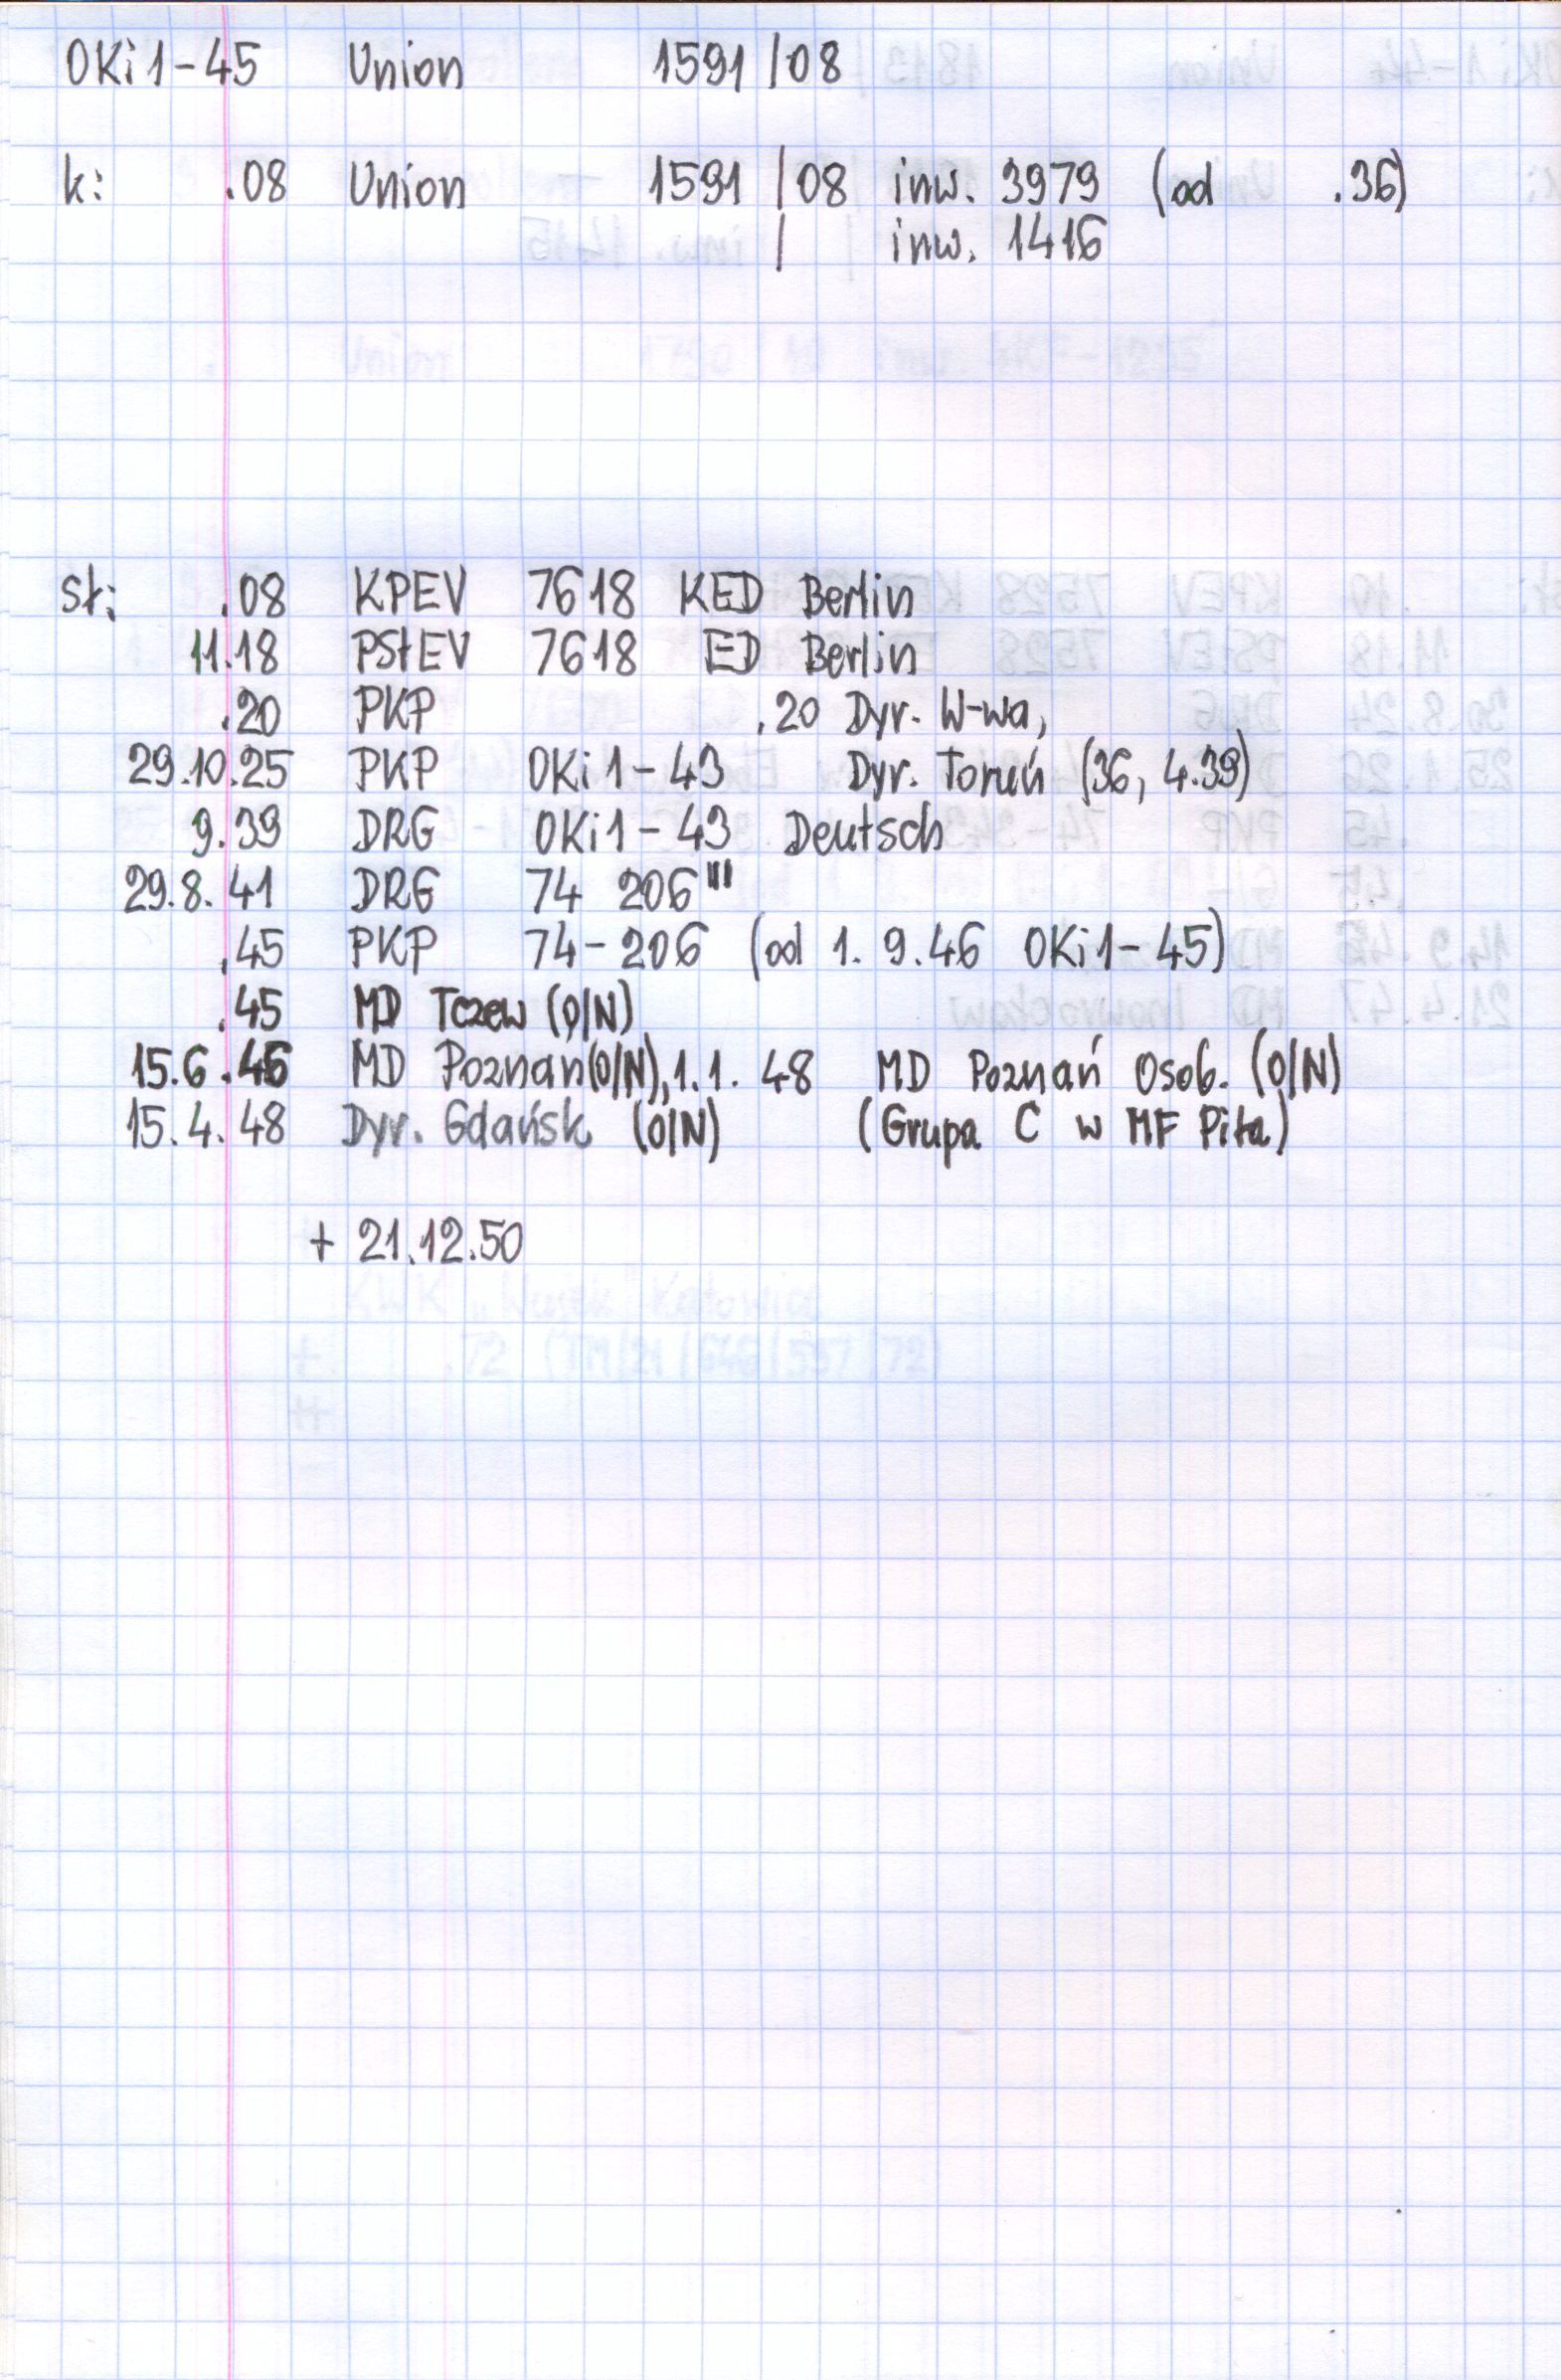 OKi1-45 Union 1591 /08
k: .08 Union 1591 /08 inw. 3979 (od .36)
/ inw. 1416
st: .08 KPEV 7618 KED Berlin
11.18 PStEV 7618 ED Berlin
.20 PKP .20 Dyr. W-wa,
29.10.25 PKP OKi1-43 Dyr. Toruń (36, 4.39)
9.39 DRG OKi1-43 Deutsch
29.8.41 DRG 74 206"'
.45 PKP 74-206 (od 1.9.46 OKi1-45)
.45 MD Tczew (O/N)
15.6.46 MD Poznań(O/N),1.1.48 MD Poznań Osob. (O/N)
15.4.48 Dyr. Gdańsk (O/N) (Grupa C w MF Piła)
+ 21.12.50